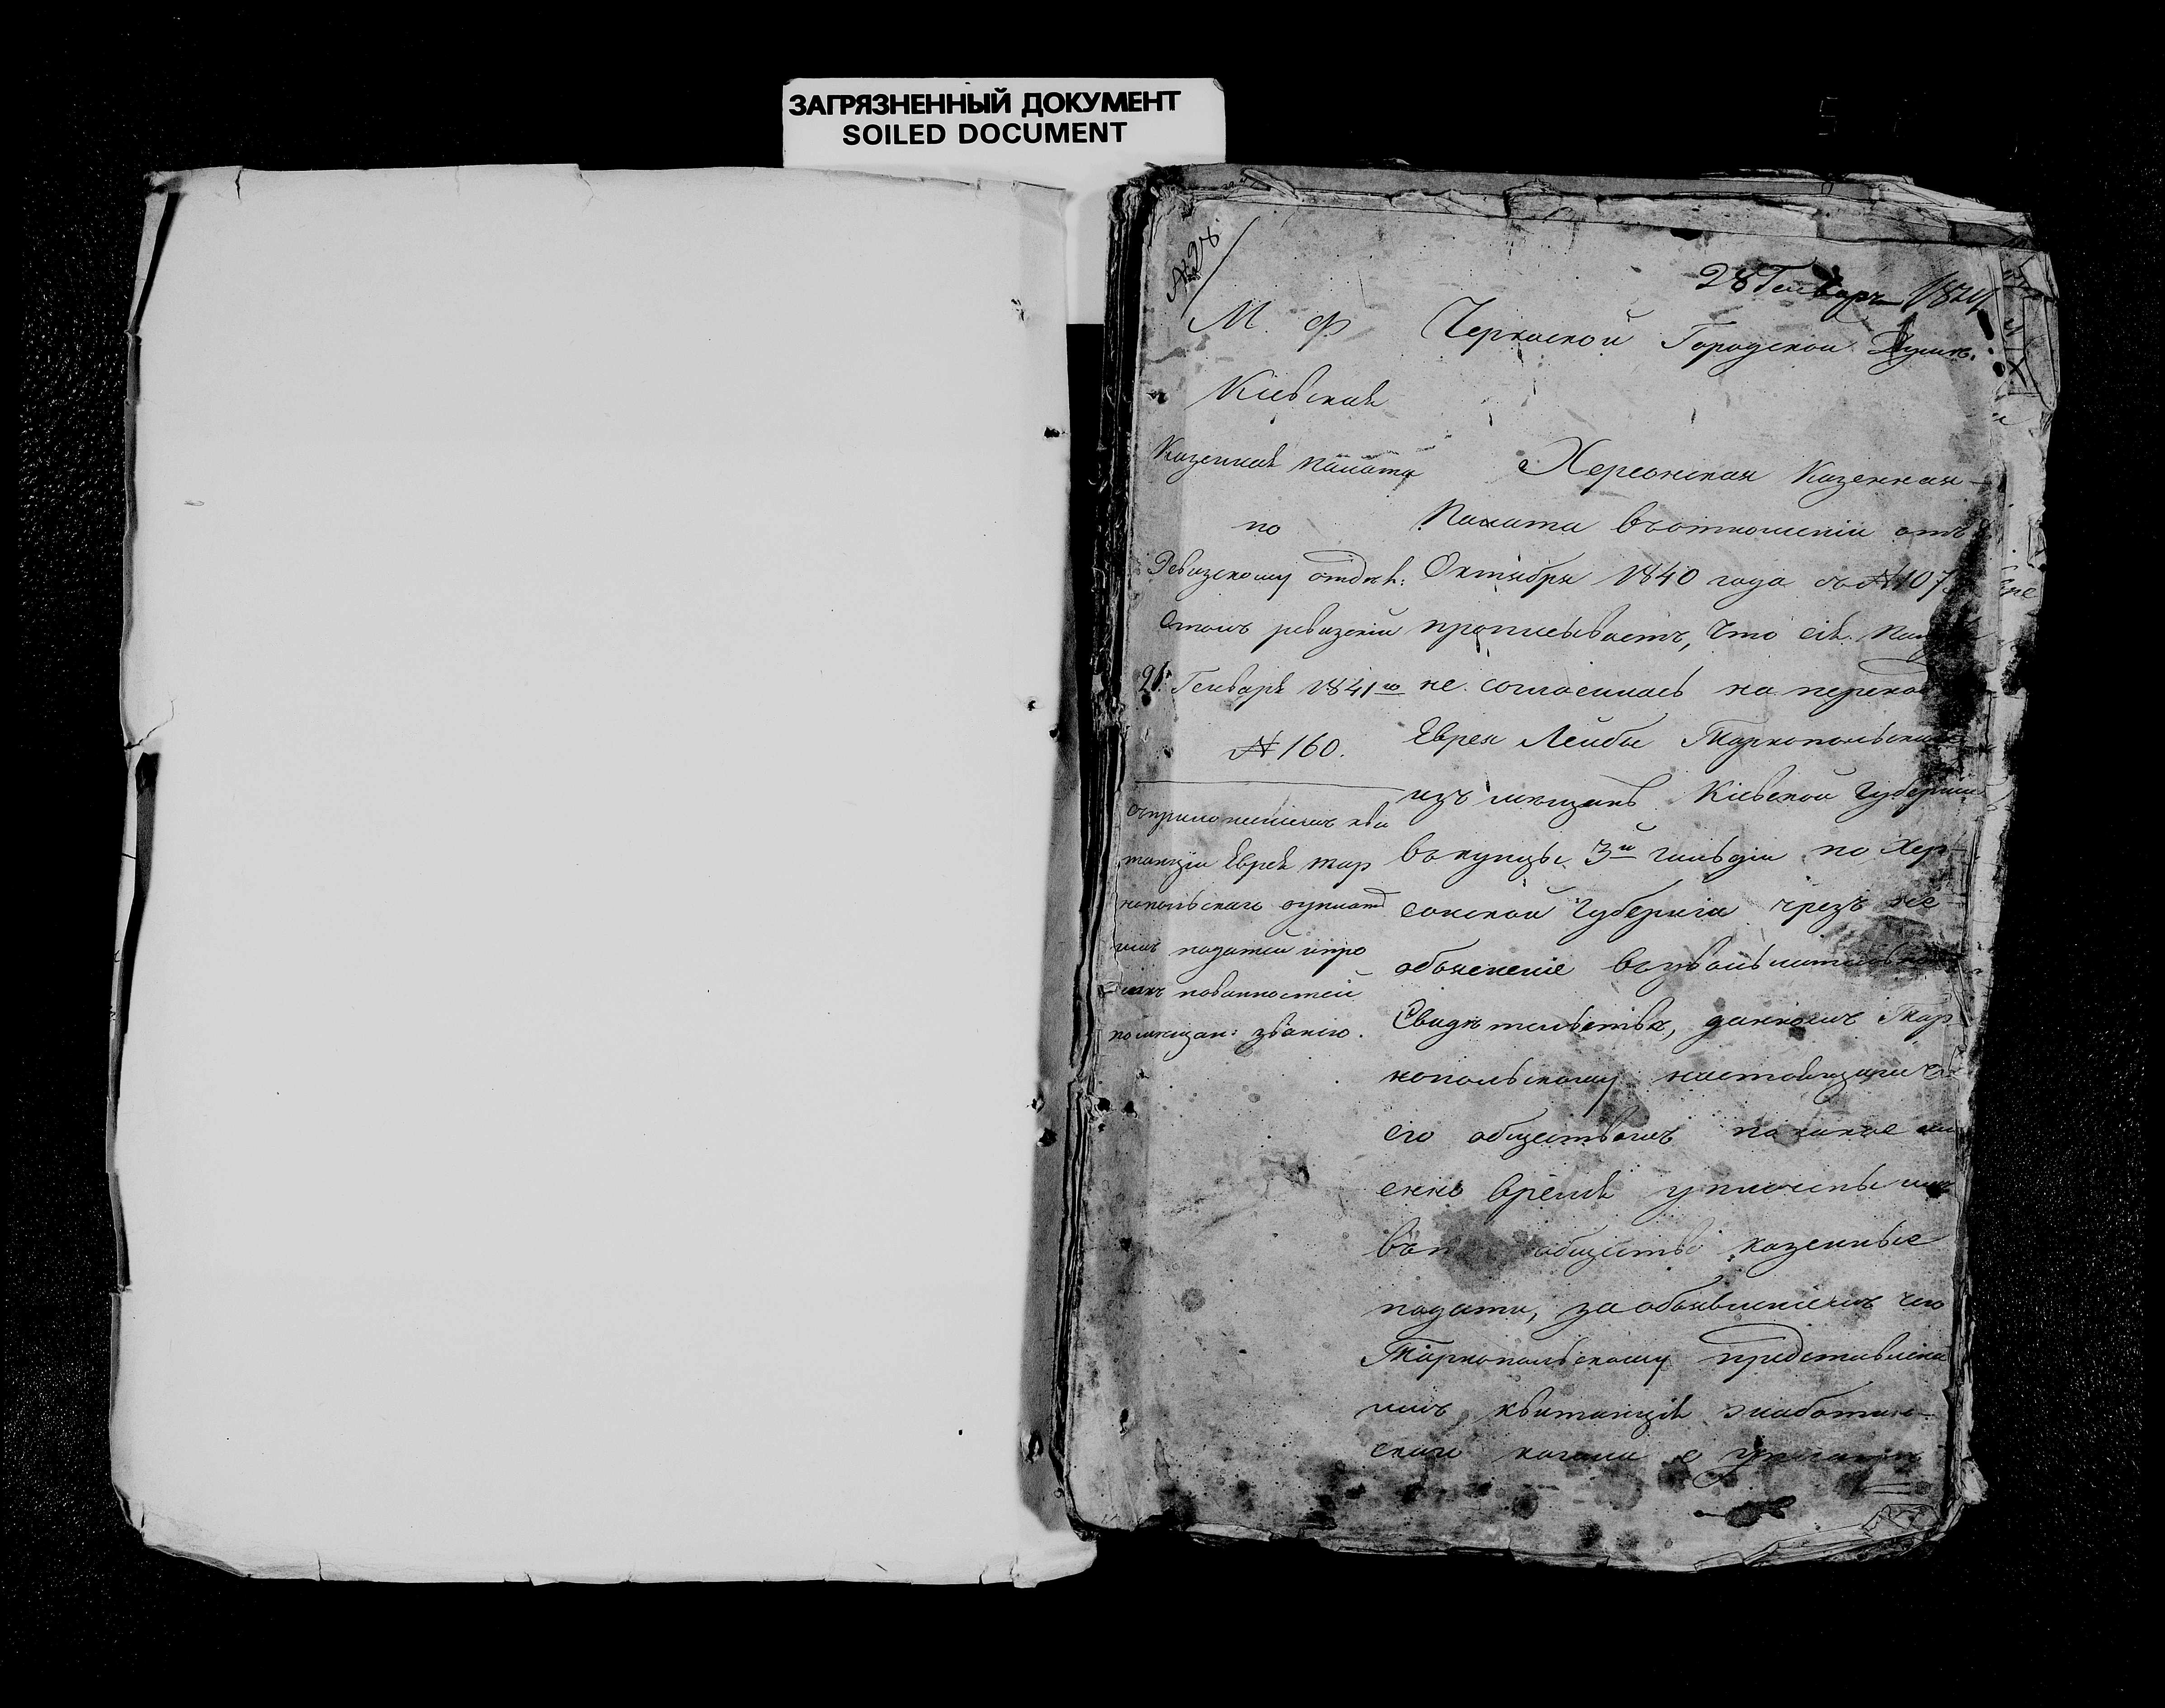 ЗАГРЯЗНЕННЫЙ ДОКУМЕНТ
SOILED DOCUMENT
28 Генваря
М. Ф.
Кіевская
Казенная палата
по
Ревизскому отдѣл:
Столъ ревизскій
21 Генваря 1841 го
№ 160.
съ приложеніемъ кви
танціи Еврея Тар
нопольскаго о уплатѣ
имъ податей и про
повинностей
по мѣщан: званію.
Черкаской Городской Думѣ.
Херсонская Казенная
Палата въ отношеніи отъ
Октября 1840 года съ № 107
прописываетъ, что сія
не согласилась на
Еврея Лейбы Тарнопольскаго
изъ мѣщанъ Кіевской Губерніи
въ купцы 3й гильдіи по Хер
сонской Губерніи чрезъ не
объясненіе въ увольнительномъ
Свидѣтельствѣ, данномъ Тар
нопольскому настоящимъ
его обществомъ по какое им
енно время уплочены имъ
въ обществѣ казенные
подати, за объявленіемъ чего
Тарнопольскому представлена
имъ квитанція
скаго кагала о